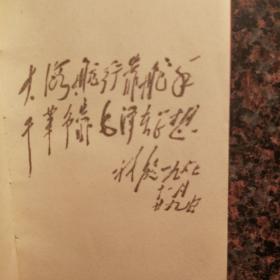 大海航行靠舵手
干革命靠毛泽东思想
林彪一九六七